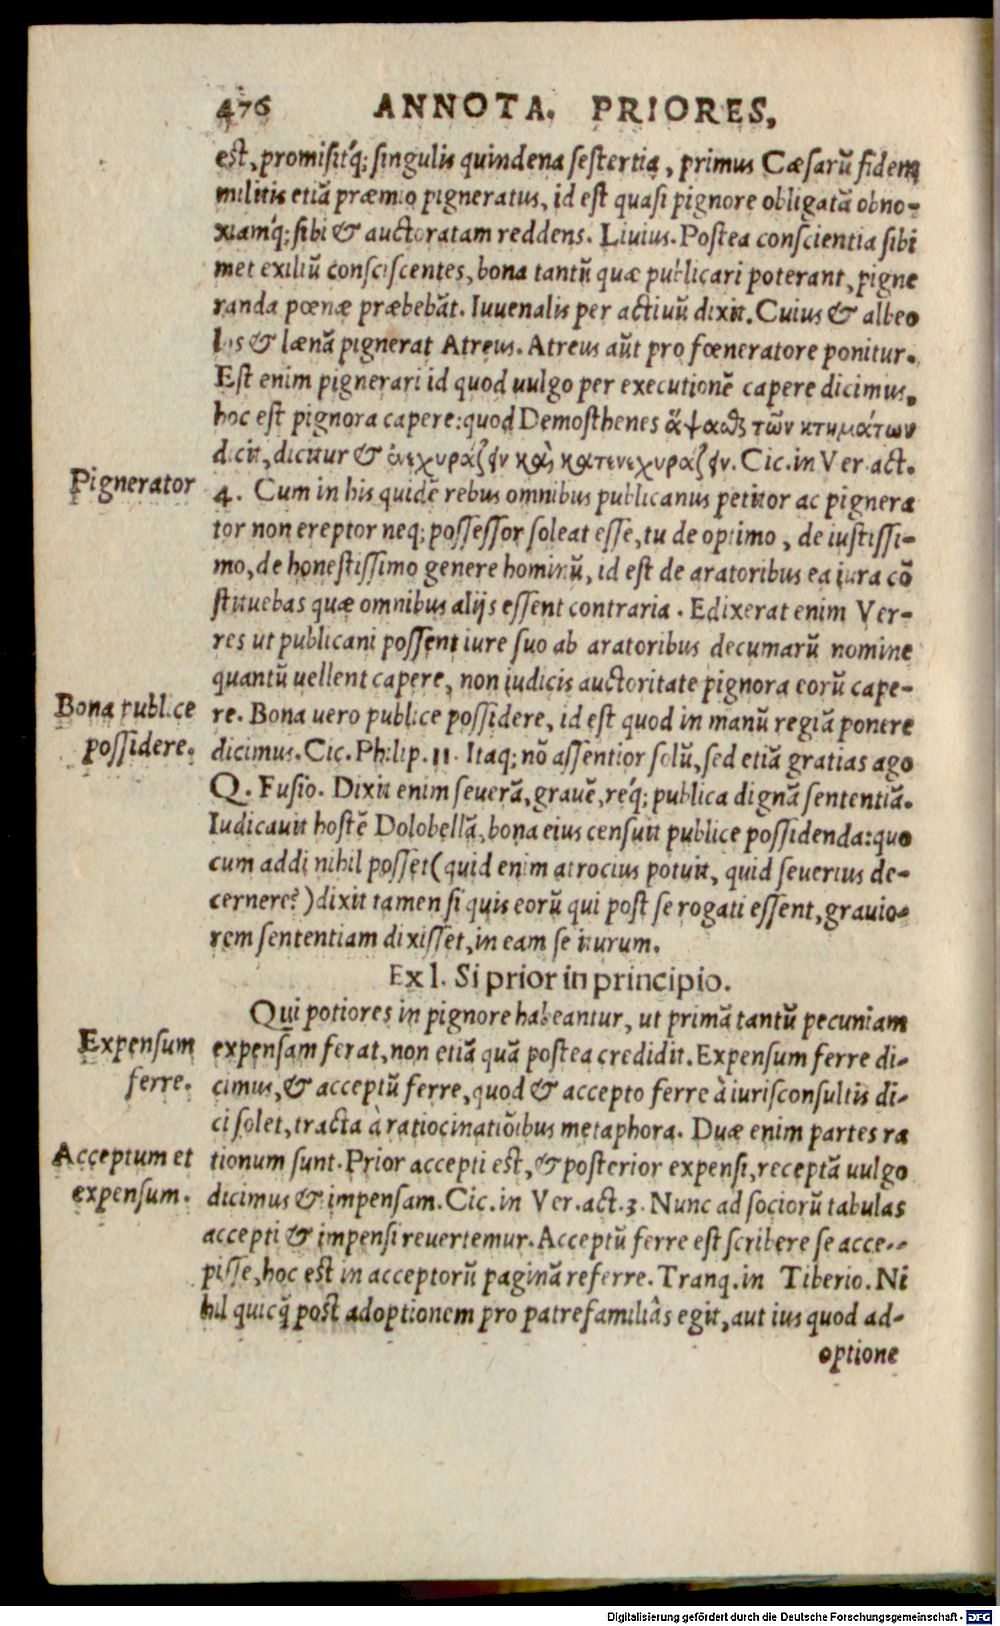 476 ANNOTA. PRIORES,
est, promisitq́; singulis quindena sestertia, primus Cæsarũ fidem
militis etiã præmio pigneratus, id est quasi pignore obligatã obno-
xiamq́; sibi & auctoratam reddens. Liuius. Postea conscientia sibi
met exiliũ consciscentes, bona tantũ quæ publicari poterant, pigne
randa pœnæ præbebãt. Iuuenalis per actiuũ dixit. Cuius & albeo
los & lænã pignerat Atreus. Atreus aũt pro fœneratore ponitur.
Est enim pignerari id quod uulgo per executionẽ capere dicimus,
hoc est pignora capere: quod Demosthenes ἅψαςθαι τῶν κτημάτων
dicit, dicitur & ἐνεχυράζειν καὶ κατενεχυράζειν. Cic. in Ver. act.
Pignerator
4. Cum in his quidẽ rebus omnibus publicanus petitor ac pignera
tor non ereptor neq; possessor soleat esse, tu de optimo, de iustissi-
mo, de honestissimo genere hominũ, id est de aratoribus ea iura cõ
stituebas quæ omnibus alijs essent contraria. Edixerat enim Ver-
res ut publicani possent iure suo ab aratoribus decumarũ nomine
quantũ uellent capere, non iudicis auctoritate pignora eorũ cape-
Bona publice
possidere.
re. Bona uero publice possidere, id est quod in manũ regiã ponere
dicimus. Cic. Philip. 11. Itaq; nõ assentior solũ, sed etiã gratias ago
Q. Fusio. Dixit enim seuerã, grauẽ, req́; publica dignã sententiã.
Iudicauit hostẽ Dolobellã, bona eius censuit publice possidenda: quo
cum addi nihil posset (quid enim atrocius potuit, quid seuerius de-
cernere?) dixit tamen si quis eorũ qui post se rogati essent, grauio-
rem sententiam dixisset, in eam se iturum.
Ex l. Si prior in principio.
Qui potiores in pignore habeantur, ut primã tantũ pecuniam
Expensum
ferre.
expensam ferat, non etiã quã postea credidit. Expensum ferre di-
cimus, & acceptũ ferre, quod & accepto ferre à iurisconsultis di-
ci solet, tracta à ratiocinatiõibus metaphora. Duæ enim partes ra
Acceptum et
expensum.
tionum sunt. Prior accepti est, & posterior expensi, receptã uulgo
dicimus & impensam. Cic. in Ver. act. 3. Nunc ad sociorũ tabulas
accepti & impensi reuertemur. Acceptũ ferre est scribere se acce-
pisse, hoc est in acceptorũ paginã referre. Tranq. in Tiberio. Ni
hil quicq̃ post adoptionem pro patrefamiliâs egit, aut ius quod ad-
optione
Digitalisierung gefördert durch die Deutsche Forschungsgemeinschaft - DFG